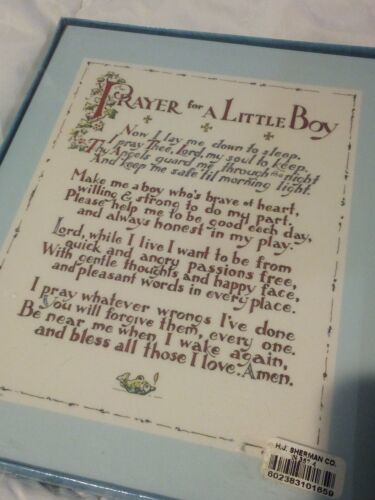 PRAYER for A LITTLE BOY
Now I lay me down to sleep,
I pray Thee, Lord, my soul to keep.
Thy Angels guard me through the night
And keep me safe til morning light.
Make me a boy who's brave of heart,
willing & strong to do my part,
Please help me to be good each day,
and always honest in my play.
Lord, while I live I want to be from
quick and angry passions free,
With gentle thoughts and happy face,
and pleasant words in every place.
I pray whatever wrongs I've done
You will forgive them, every one.
Be near me when I wake again,
and bless all those I love. Amen.
H.J. SHERMAN CO.
602383101659